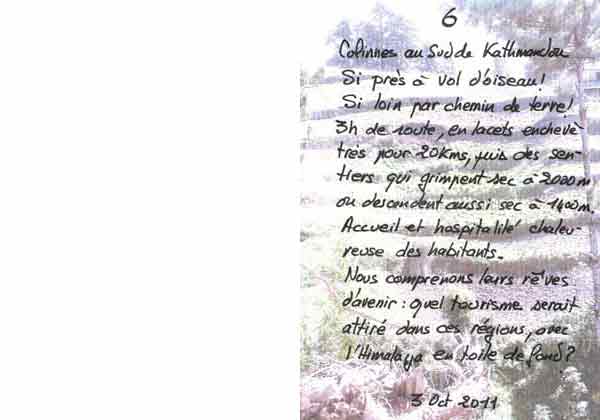 6
Colinnes au Sud de Kathmandou
Si près à vol d'oiseau!
Si loin par chemin de terre!
3h de route, en lacets enchevê-
trés pour 20Kms, puis des sen-
tiers qui grimpent sec à 2000m
ou descendent aussi sec à 1400m.
Accueil et hospitalité chaleu-
reuse des habitants.
Nous comprenons leurs rêves
d'avenir : quel tourisme serait
attiré dans ces régions, avec
l'Himalaya en toile de fond?
3 Oct 2011